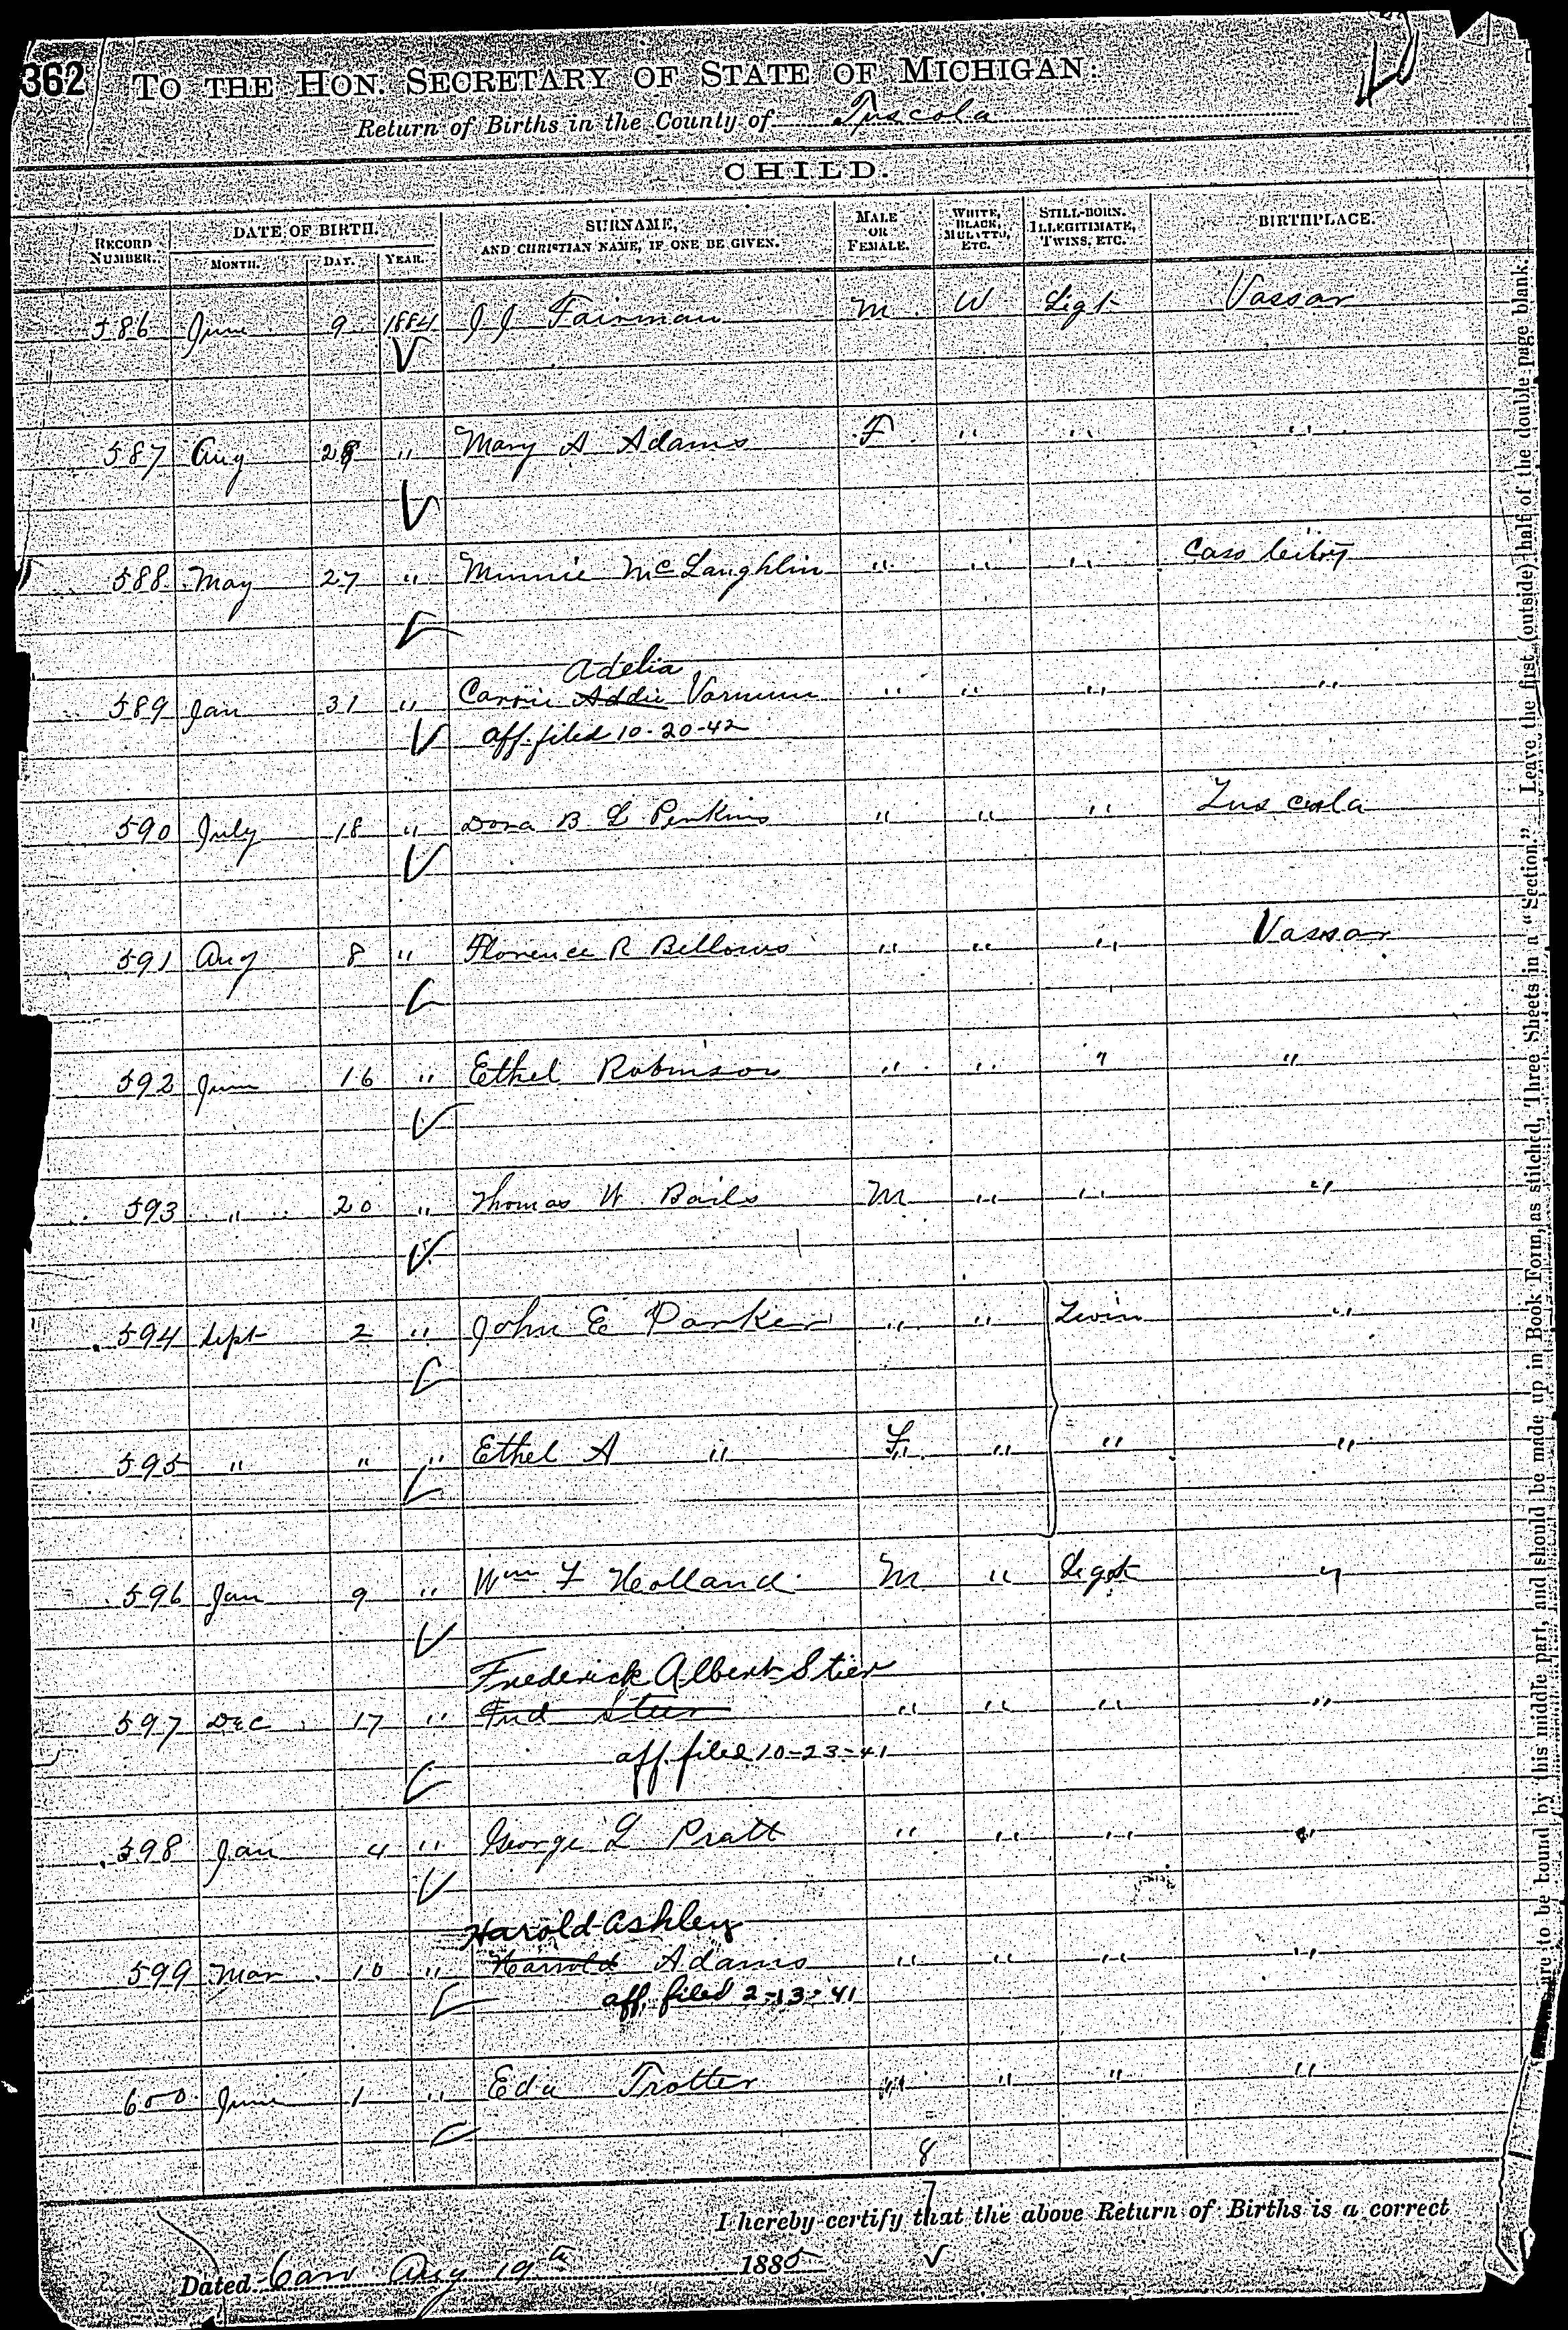 362 TO THE HON. SECRETARY OF STATE OF MICHIGAN:
Return of Births in the County of Tuscola
CHILD.
RECORD NUMBER. DATE OF BIRTH. MONTH. DAY. YEAR. SURNAME, AND CHRISTIAN NAME, IF ONE BE GIVEN. MALE OR FEMALE. WHITE, BLACK, MULATTO, ETC. STILL-BORN, ILLEGITIMATE, TWINS, ETC. BIRTHPLACE.
586 June 9 1884 J J Fairman M W Ligt Vassar
587 Aug 28 " Mary A Adams F " " "
588 May 27 " Minnie McLaughlin " " " Caro
Adelia
589 Jan 31 " Carrie Addie Varnum " " " "
aff. filed 10-20-42
590 July 18 " Dora B L Perkins " " " Tuscola
591 Aug 8 " Florence R Bellows " " " Vassar
592 June 16 " Ethel Robinson " " " "
593 " 20 " Thomas W Bails M " " "
594 Sept 2 " John E Parker " " Twin "
595 " " " Ethel A " F " " "
596 Jan 9 " Wm F Holland M " Legt "
Frederick Albert Stier
597 Dec 17 " Fred Steer " " " "
aff. filed 10-23-41
598 Jan 4 " George L Pratt " " " "
Harold Ashley
599 Mar 10 " Harrold Adams " " " "
aff. filed 2-13-41
600 June 1 " Eda Trotter " " "
8
7
I hereby certify that the above Return of Births is a correct
Dated Caro Aug 19th 1885
are to be bound by this middle part, and should be made up in Book Form, as stitched, Three Sheets in a "Section." Leave the first (outside) half of the double page blank.